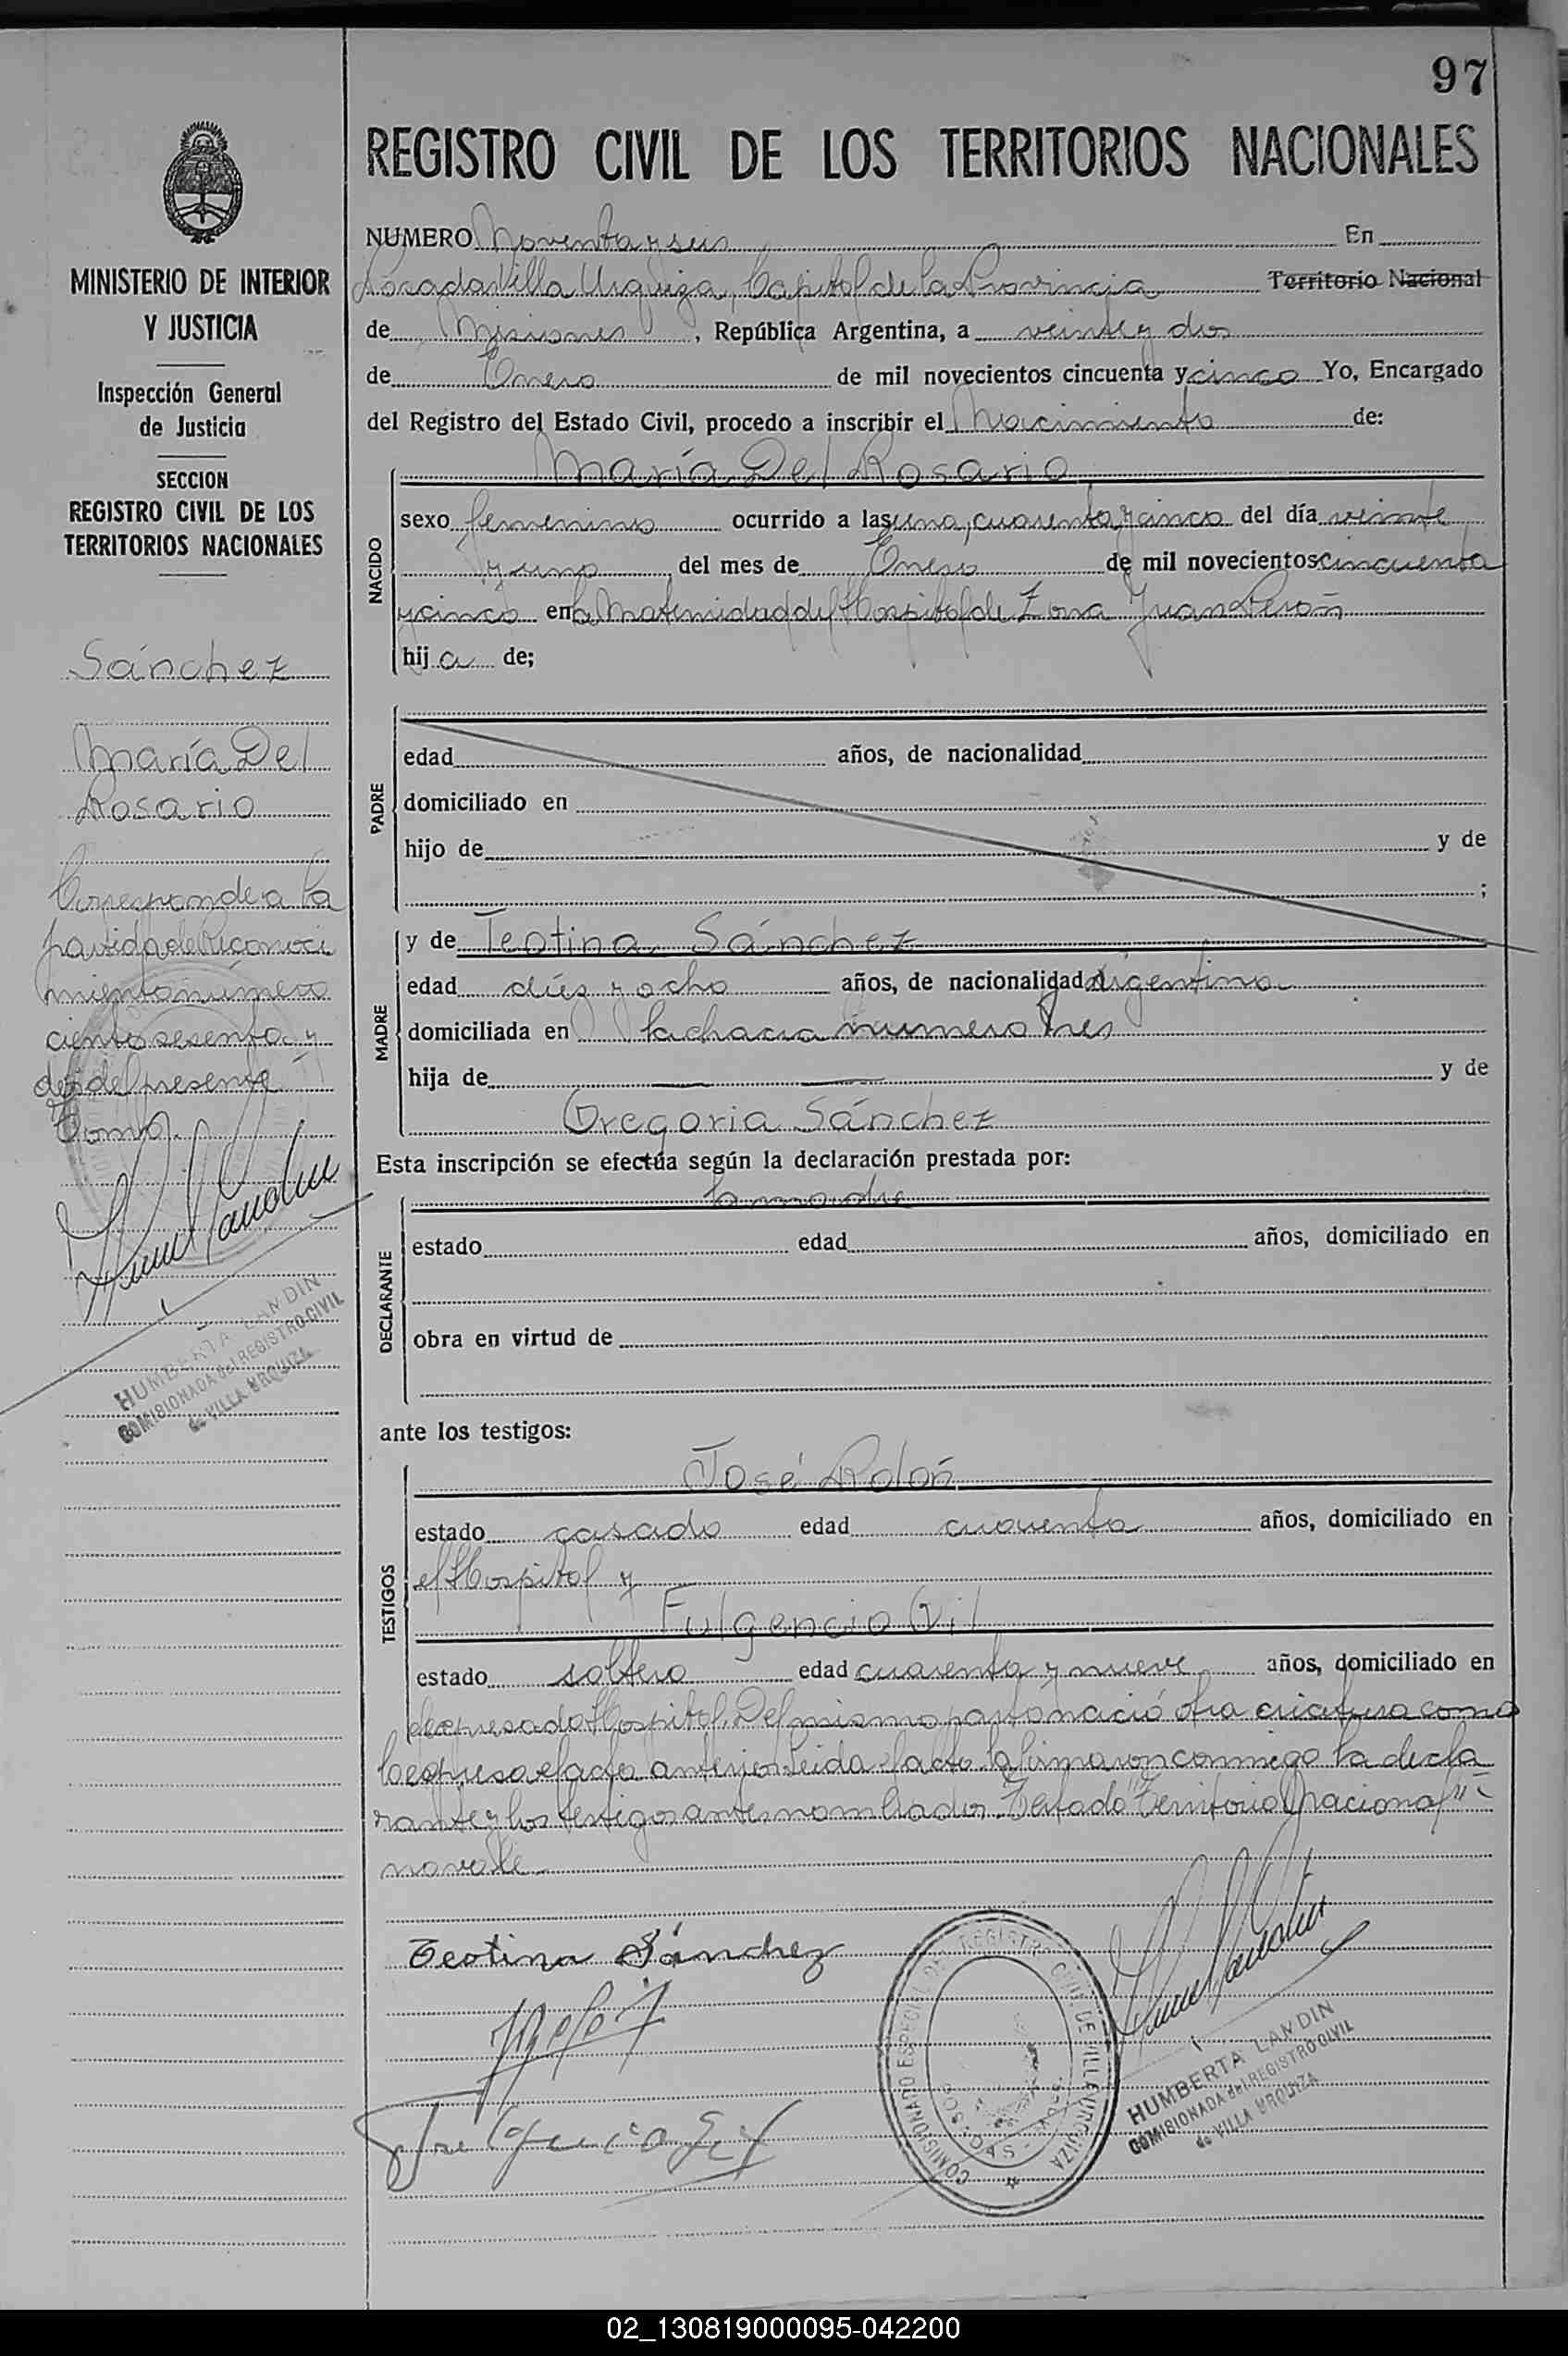 97
REGISTRO CIVIL DE LOS TERRITORIOS NACIONALES
MINISTERIO DE INTERIOR
Y JUSTICIA
Inspección General
de Justicia
SECCION
REGISTRO CIVIL DE LOS
TERRITORIOS NACIONALES
Sánchez
María Del
Rosario
Corresponde a la
partida de Reconoci
miento número
ciento sesenta y
del presente
Tomo.
HUMBERTA LANDIN
COMISIONADA del REGISTRO CIVIL
de VILLA URQUIZA
NUMERO Noventa y seis En
Posadas Villa Urquiza, Capital de la Provincia Territorio Nacional
de Misiones, República Argentina, a veinte y dos
de Enero de mil novecientos cincuenta y cinco Yo, Encargado
del Registro del Estado Civil, procedo a inscribir el Nacimiento de:
NACIDO
María Del Rosario
sexo femenino ocurrido a las una, cuarenta y cinco del día veinte
y uno del mes de Enero de mil novecientos cincuenta
y cinco en la Maternidad del Hospital de Zona Juan Perón
hij a de;
PADRE
edad años, de nacionalidad
domiciliado en
hijo de y de
;
MADRE
y de Teotina Sánchez
edad diéz y ocho años, de nacionalidad Argentina
domiciliada en la chacra número tres
hija de y de
Gregoria Sánchez
Esta inscripción se efectúa según la declaración prestada por:
DECLARANTE
la madre
estado edad años, domiciliado en
obra en virtud de
ante los testigos:
TESTIGOS
José Rolón
estado casado edad cuarenta años, domiciliado en
el Hospital y
Fulgencio Gil
estado soltero edad cuarenta y nueve años, domiciliado en
el expresado Hospital. Del mismo parto nació otra criatura como
lo expresa el acta anterior. Leida el acta la firmaron conmigo la decla
rante y los testigos antes nombrados. Testado "Territorio nacional"
no vale.
Teotina Sánchez
Fulgencio Gil
COMISIONADO ESPECIAL DEL REGISTRO CIVIL DE VILLA URQUIZA
HUMBERTA LANDIN
COMISIONADA del REGISTRO CIVIL
de VILLA URQUIZA
02_130819000095-042200